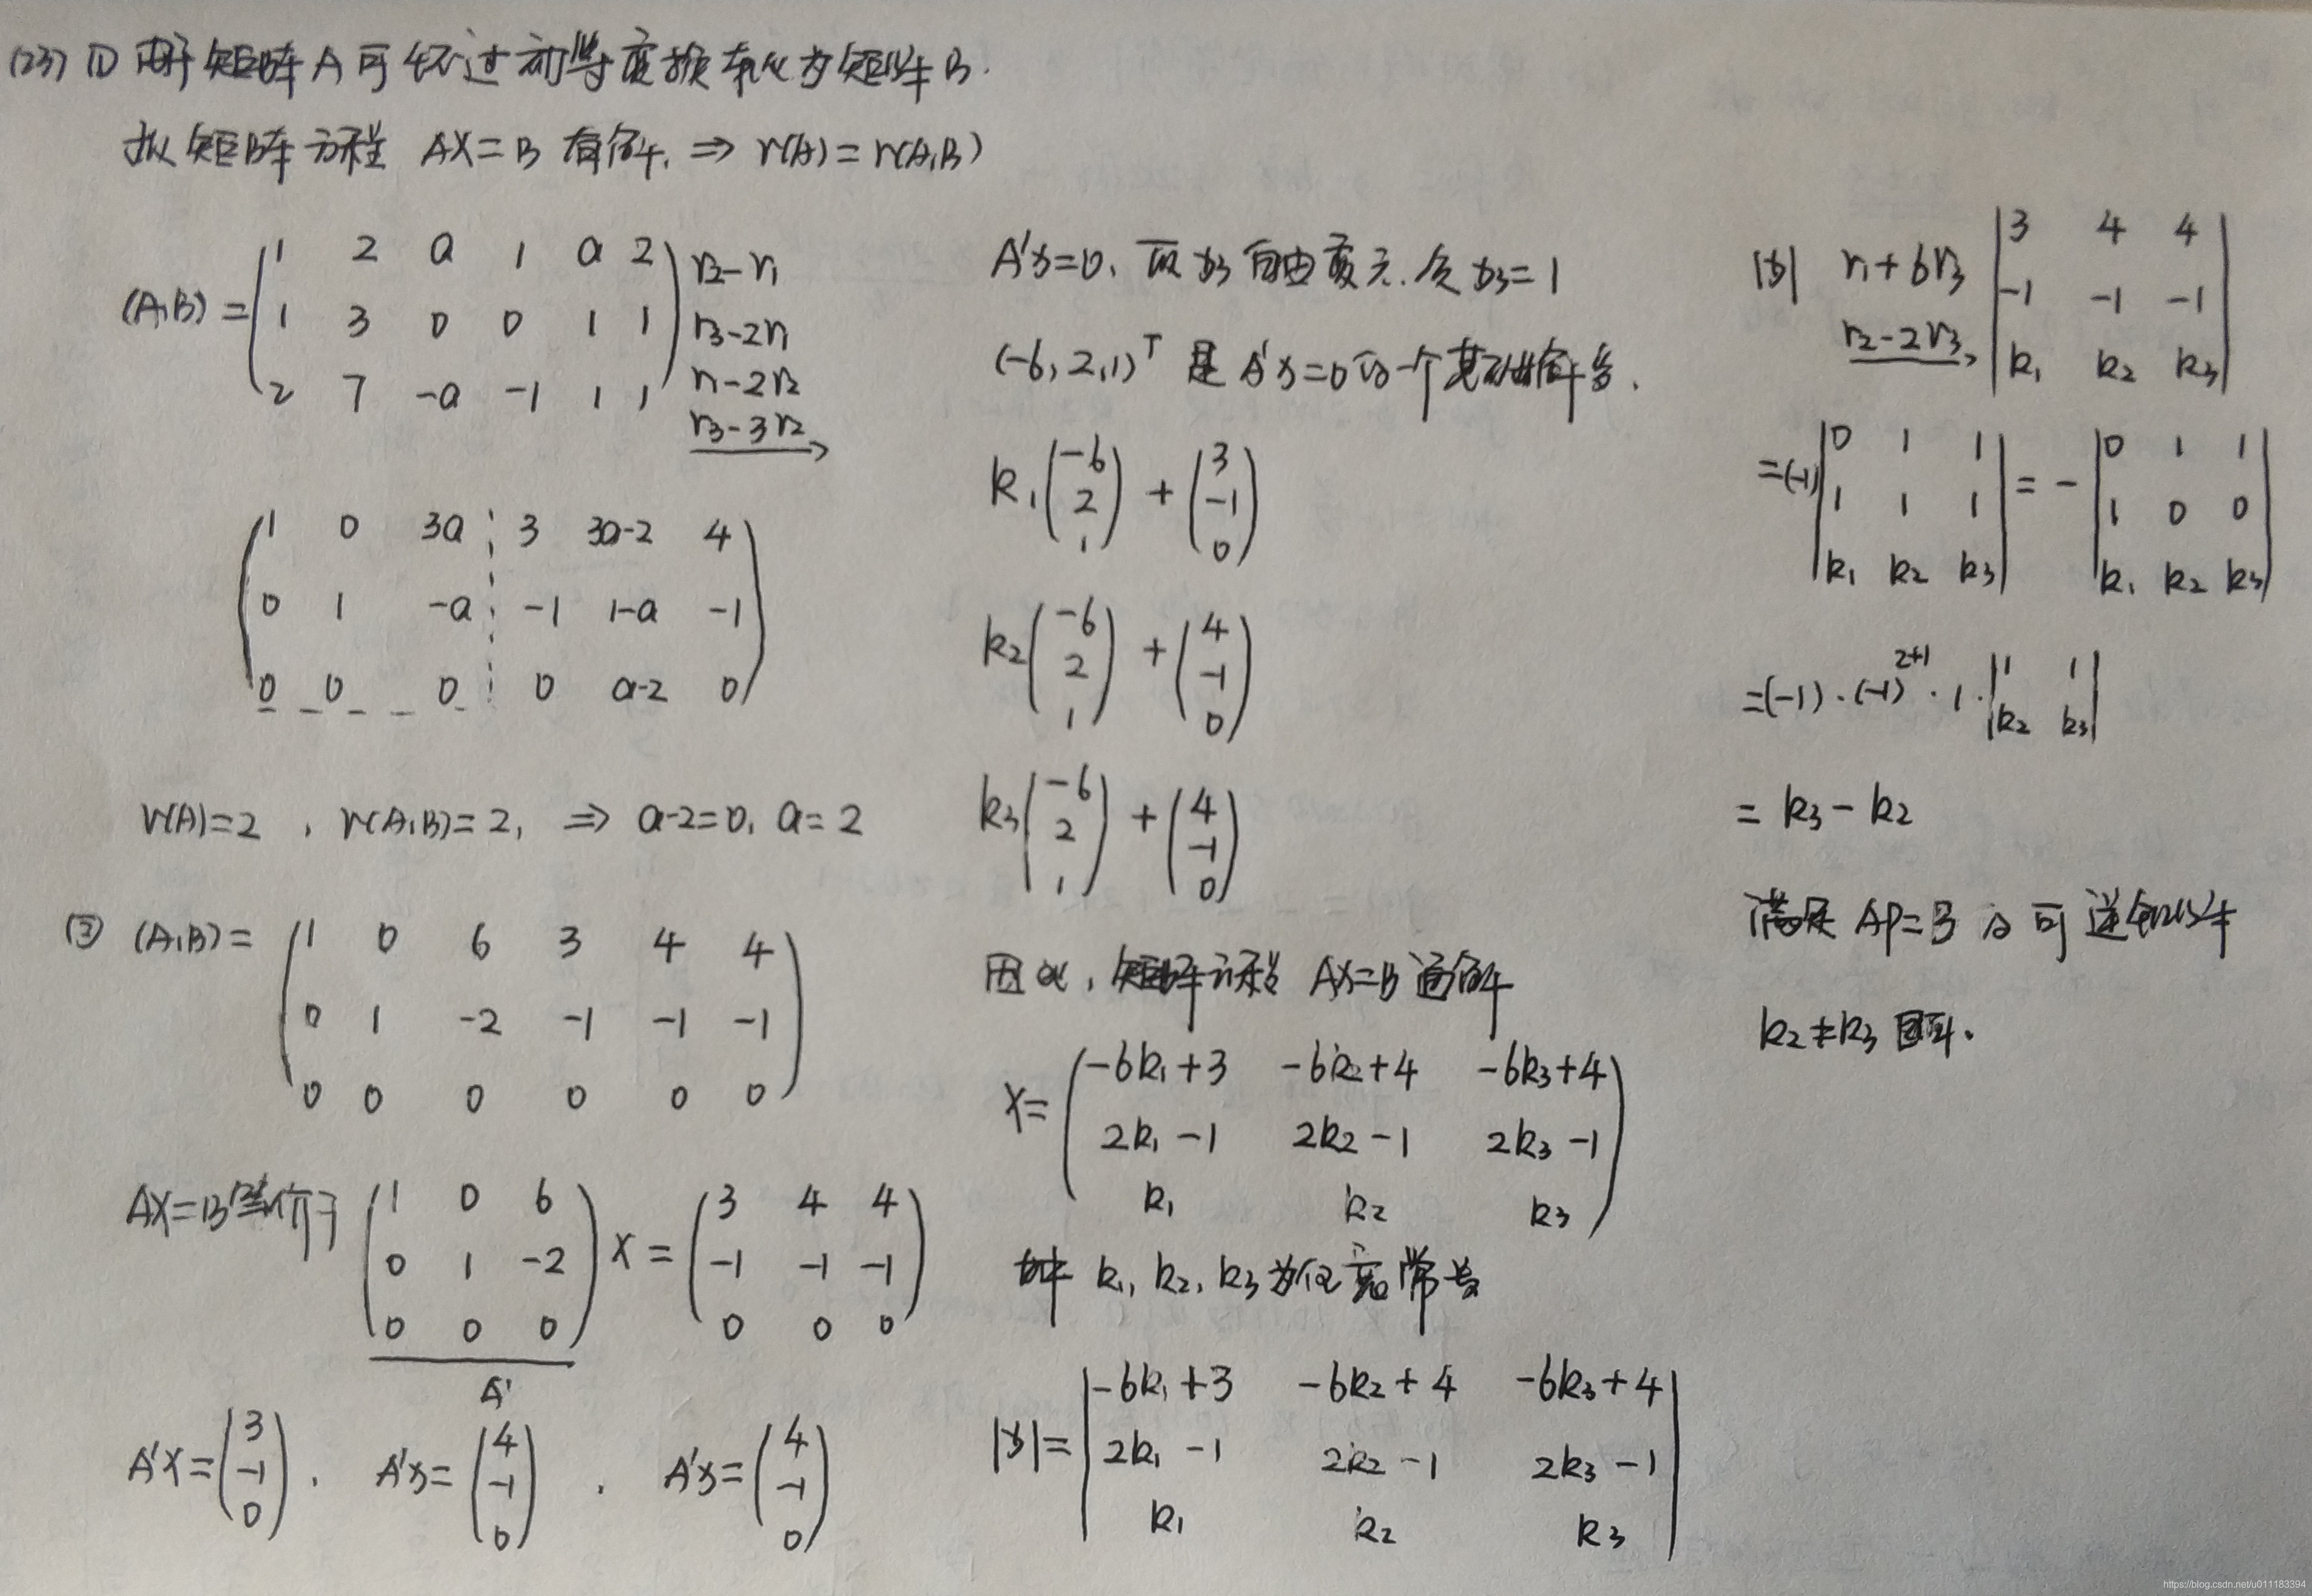 (23) ① 由于矩阵A可经过初等变换转化为矩阵B.
故矩阵方程 AX=B 有解, ⇒ r(A)=r(A,B)
(A,B) = ( 1 2 a 1 a 2 ) r2-r1
( 1 3 0 0 1 1 ) r3-2r1
( 2 7 -a -1 1 1 ) r1-2r2
r3-3r2 →
( 1 0 3a ⋮ 3 3a-2 4 )
( 0 1 -a ⋮ -1 1-a -1 )
( 0 0 0 ⋮ 0 a-2 0 )
r(A)=2 , r(A,B)=2, ⇒ a-2=0, a=2
② (A,B) = ( 1 0 6 3 4 4 )
( 0 1 -2 -1 -1 -1 )
( 0 0 0 0 0 0 )
AX=B等价于 ( 1 0 6 ) X = ( 3 4 4 )
( 0 1 -2 ) ( -1 -1 -1 )
( 0 0 0 ) ( 0 0 0 )
A'
A'x = ( 3 -1 0 ) , A'x = ( 4 -1 0 ) , A'x = ( 4 -1 0 )
A'x=0, 取x3自由变元, 令x3=1
(-6, 2, 1)ᵀ 是 A'x=0的一个基础解系.
k1 ( -6 2 1 ) + ( 3 -1 0 )
k2 ( -6 2 1 ) + ( 4 -1 0 )
k3 ( -6 2 1 ) + ( 4 -1 0 )
因此, 矩阵方程 AX=B 通解
X = ( -6k1+3 -6k2+4 -6k3+4 )
( 2k1-1 2k2-1 2k3-1 )
( k1 k2 k3 )
其中 k1, k2, k3为任意常数
|x| = | -6k1+3 -6k2+4 -6k3+4 |
| 2k1-1 2k2-1 2k3-1 |
| k1 k2 k3 |
|x| r1+6r3 | 3 4 4 |
r2-2r3 → | -1 -1 -1 |
| k1 k2 k3 |
=(-1) | 0 1 1 | = - | 0 1 1 |
| 1 1 1 | | 1 0 0 |
| k1 k2 k3 | | k1 k2 k3 |
=(-1)·(-1)²⁺¹·1· | 1 1 |
| k2 k3 |
= k3 - k2
满足 AP=B 的可逆矩阵
k2≠k3 即可.
https://blog.csdn.net/u011183394